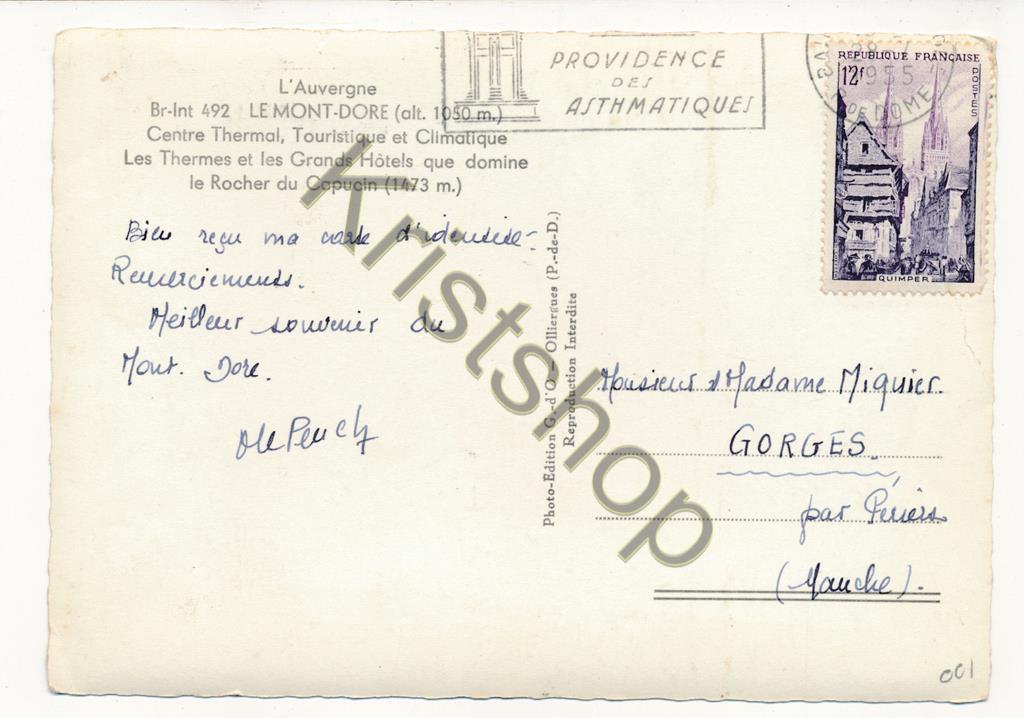 L'Auvergne
Br-Int 492 LE MONT-DORE (alt. 1050 m.)
Centre Thermal, Touristique et Climatique
Les Thermes et les Grands Hôtels que domine
le Rocher du Capucin (1473 m.)
Bien reçu ma carte d'identité.
Remerciements.
Meilleur souvenir du
Mont. Dore.
PROVIDENCE
DES
ASTHMATIQUES
28-7
1955
DE DOME
REPUBLIQUE FRANÇAISE
12f
POSTES
QUIMPER
Photo-Edition G.-d'O. - Olliergues (P.-de-D.)
Reproduction Interdite
Monsieur & Madame Miquier.
GORGES.
par Périers
(Manche).
001
Kristshop